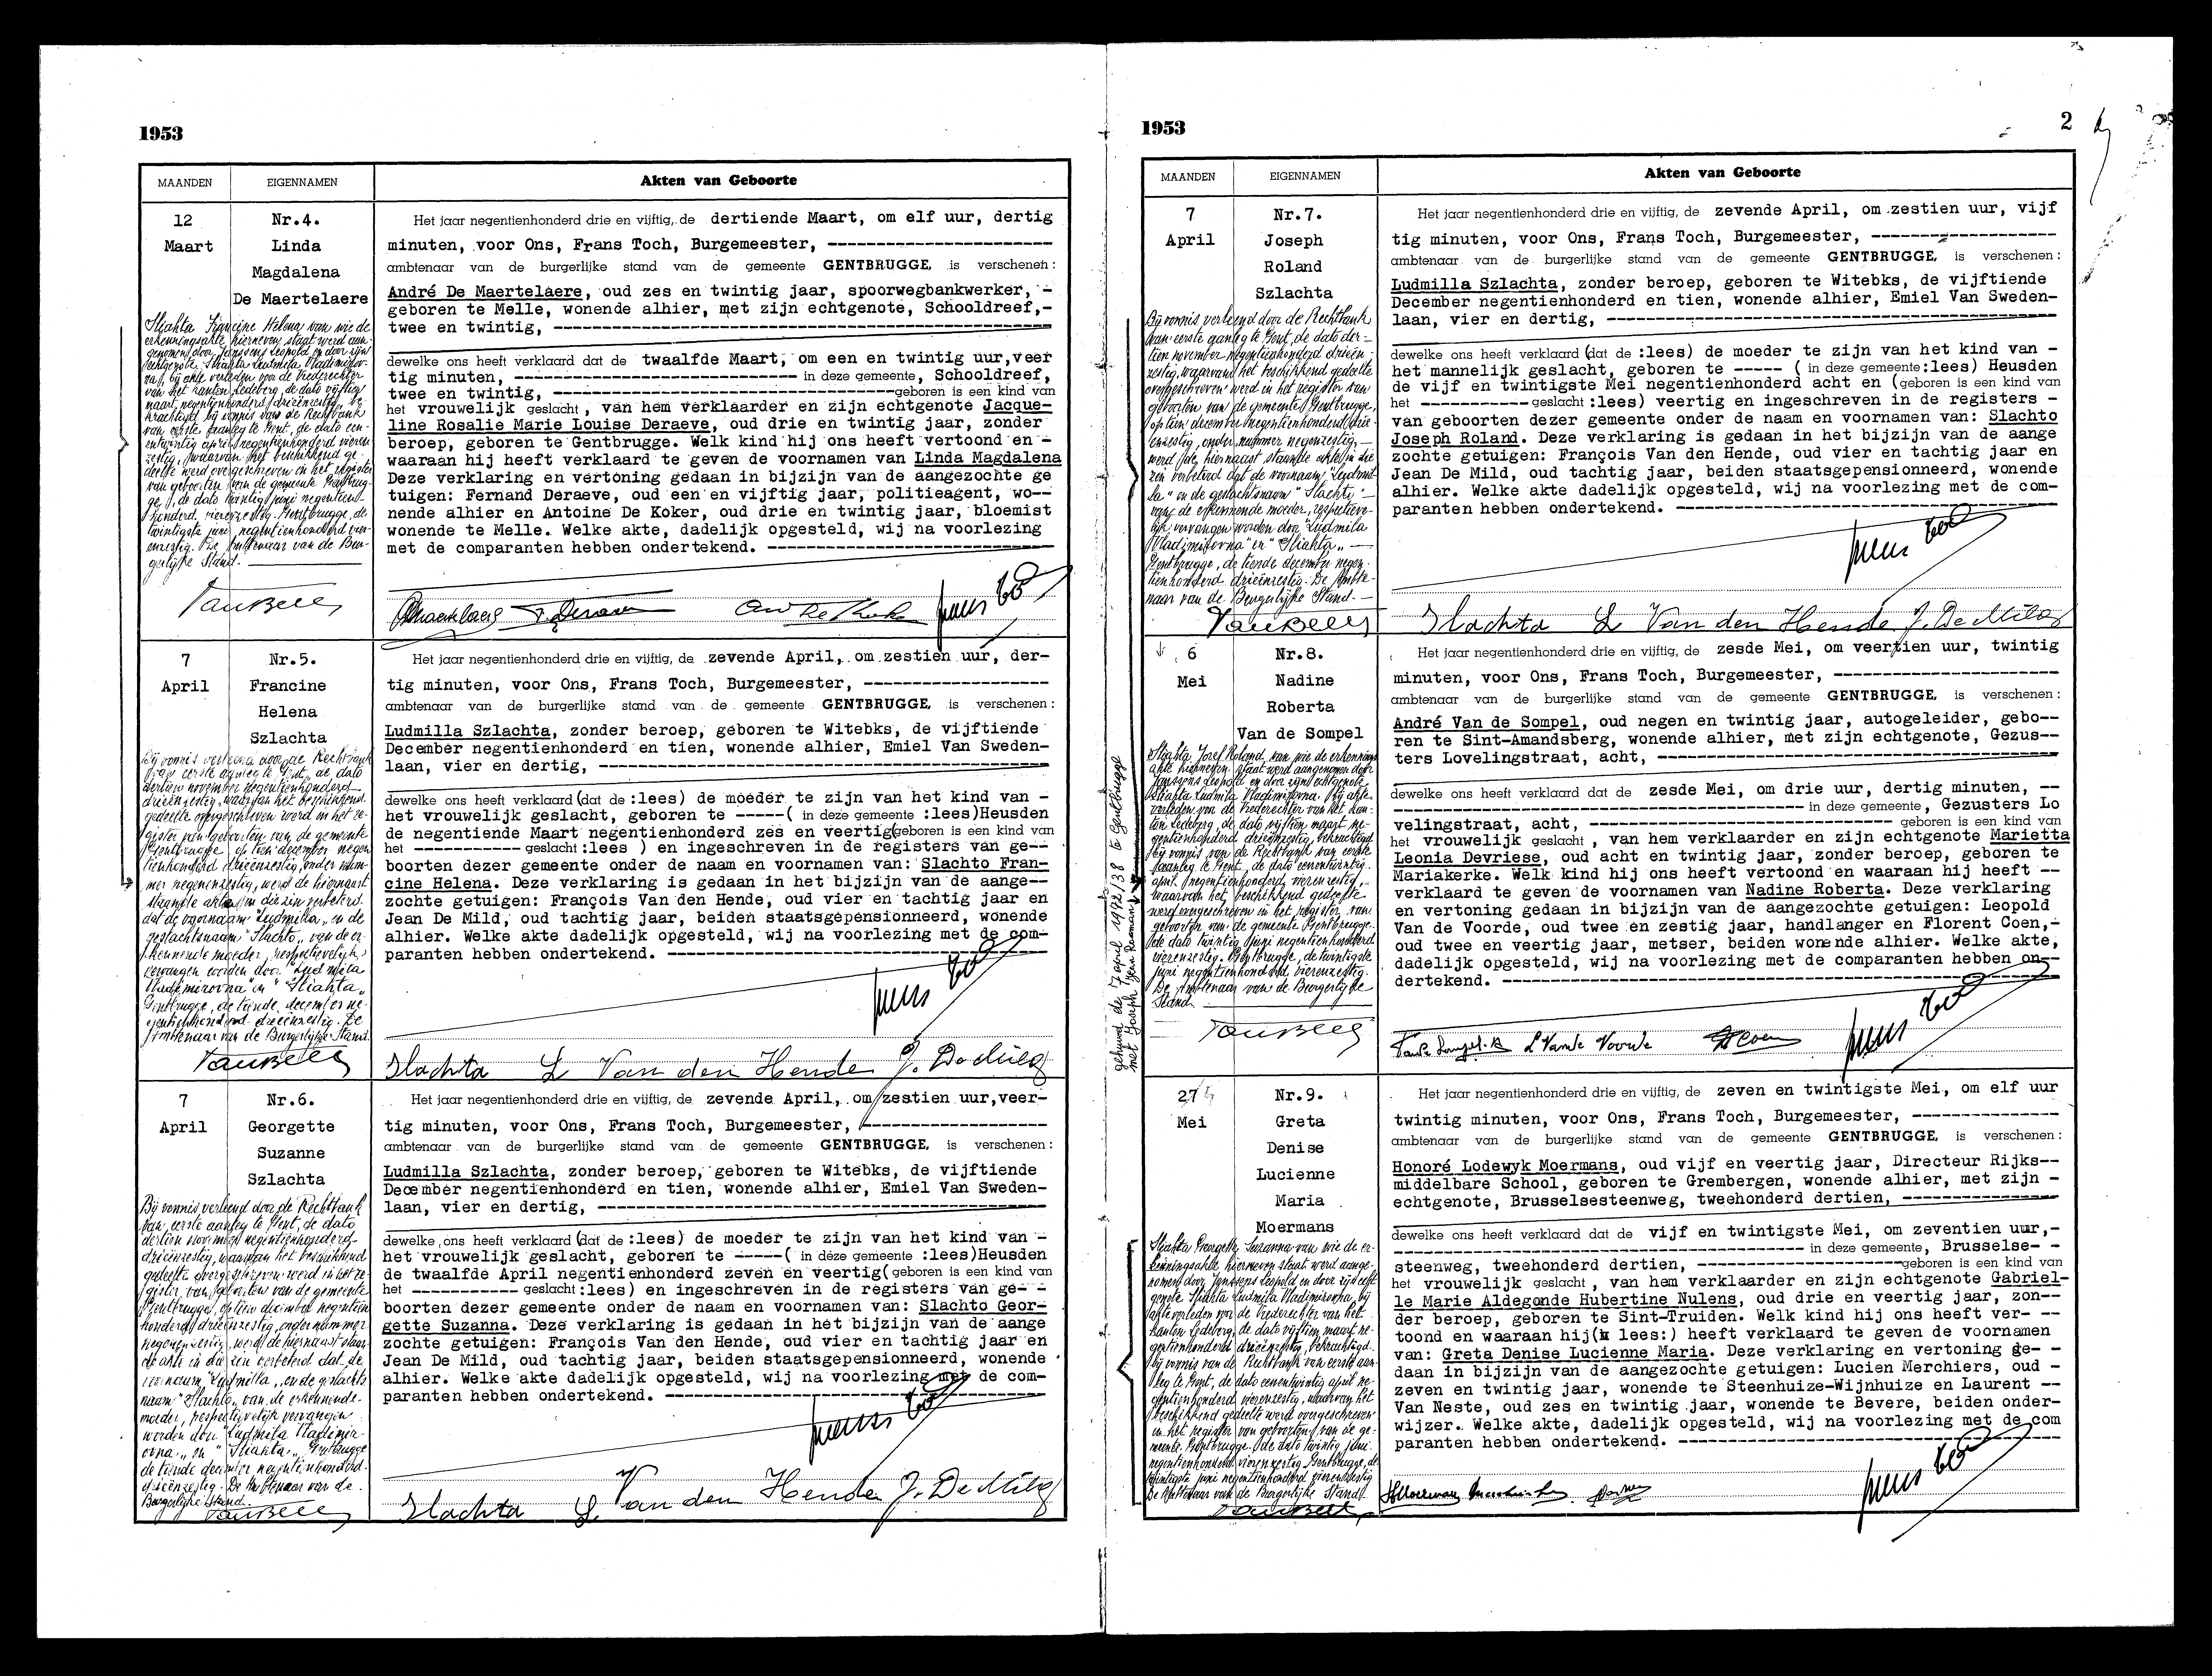 1953
MAANDEN
EIGENNAMEN
Akten van Geboorte
12
Maart
Nr.4.
Linda
Magdalena
De Maertelaere
Sliahta Francine Helena van wie de
erkenningsakte hierneven staat werd aan-
genomen door Janssens Leopold en door zijn
echtgenote Sliahta Ludmila Vladimirov-
na, bij akte verleden voor de Vrederechter
van het kanton Ledeberg, de dato vijftien
maart negentienhonderd drieënzestig, be-
krachtigd bij vonnis van de Rechtbank
van eerste aanleg te Gent, de dato een-
entwintig april negentienhonderd vieren-
zestig, waarvan het beschikkend ge-
deelte werd overgeschreven in het register
van geboorten van de gemeente Gentbrug-
ge, de dato twintig juni negentien-
honderd vierenzestig. Gentbrugge, de
twintigste juni negentienhonderd vier-
enzestig. De Ambtenaar van de Bur-
gerlijke Stand.
Het jaar negentienhonderd drie en vijftig, de dertiende Maart, om elf uur, dertig
minuten, voor Ons, Frans Toch, Burgemeester, ------------------------
ambtenaar van de burgerlijke stand van de gemeente GENTBRUGGE, is verschenen:
André De Maertelaere, oud zes en twintig jaar, spoorwegbankwerker, -
geboren te Melle, wonende alhier, met zijn echtgenote, Schooldreef,-
twee en twintig, ------------------------
dewelke ons heeft verklaard dat de twaalfde Maart, om een en twintig uur, veer
tig minuten, ------------------------ in deze gemeente, Schooldreef,
twee en twintig, ------------------------geboren is een kind van
het vrouwelijk geslacht, van hem verklaarder en zijn echtgenote Jacque-
line Rosalie Marie Louise Deraeve, oud drie en twintig jaar, zonder
beroep, geboren te Gentbrugge. Welk kind hij ons heeft vertoond en -
waaraan hij heeft verklaard te geven de voornamen van Linda Magdalena
Deze verklaring en vertoning gedaan in bijzijn van de aangezochte ge
tuigen: Fernand Deraeve, oud een en vijftig jaar, politieagent, wo--
nende alhier en Antoine De Koker, oud drie en twintig jaar, bloemist
wonende te Melle. Welke akte, dadelijk opgesteld, wij na voorlezing
met de comparanten hebben ondertekend. ------------------------
7
April
Nr.5.
Francine
Helena
Szlachta
Bij vonnis verleend door de Rechtbank
van eerste aanleg te Gent, de dato
dertien november negentienhonderd
drieënzestig, waarvan het beschikkend
gedeelte overgeschreven werd in het re-
gister van geboorten van de gemeente
Gentbrugge op tien december negen
tienhonderd drieënzestig, onder num-
mer negenenzestig, werd de hiernaast
staande akte in die zin verbeterd
dat de voornaam "Ludmilla" en de
geslachtsnaam "Slachto" van de er-
kennende moeder, respectievelijk
vervangen worden door "Ludmila
Vladimirovna" en "Sliahta".
Gentbrugge, de tiende december ne-
gentienhonderd drieënzestig. De
Ambtenaar van de Burgerlijke Stand.
Het jaar negentienhonderd drie en vijftig, de zevende April, om zestien uur, der-
tig minuten, voor Ons, Frans Toch, Burgemeester, --------------------
ambtenaar van de burgerlijke stand van de gemeente GENTBRUGGE, is verschenen:
Ludmilla Szlachta, zonder beroep, geboren te Witebks, de vijftiende
December negentienhonderd en tien, wonende alhier, Emiel Van Sweden-
laan, vier en dertig, ------------------------
dewelke ons heeft verklaard (dat de :lees) de moeder te zijn van het kind van -
het vrouwelijk geslacht, geboren te -----( in deze gemeente :lees)Heusden
de negentiende Maart negentienhonderd zes en veertig(geboren is een kind van
het ------------ geslacht :lees ) en ingeschreven in de registers van ge--
boorten dezer gemeente onder de naam en voornamen van: Slachto Fran-
cine Helena. Deze verklaring is gedaan in het bijzijn van de aange--
zochte getuigen: François Van den Hende, oud vier en tachtig jaar en
Jean De Mild, oud tachtig jaar, beiden staatsgepensionneerd, wonende
alhier. Welke akte dadelijk opgesteld, wij na voorlezing met de com-
paranten hebben ondertekend. ------------------------
Slachta L Van den Hende J. De Mild
7
April
Nr.6.
Georgette
Suzanne
Szlachta
Bij vonnis verleend door de Rechtbank
van eerste aanleg te Gent, de dato
dertien november negentienhonderd
drieënzestig, waarvan het beschikkend
gedeelte overgeschreven werd in het re-
gister van geboorten van de gemeente
Gentbrugge, op tien december negentien
honderd drieënzestig, onder nummer
negenenzestig, werd de hiernaast staan-
de akte in die zin verbeterd dat de
voornaam "Ludmilla" en de geslachts
naam "Slachta" van de erkennende
moeder, respectievelijk vervangen
worden door "Ludmila Vladimir-
ovna" en "Sliahta". Gentbrugge
de tiende december negentienhonderd
drieënzestig. De Ambtenaar van de
Burgerlijke Stand.
Het jaar negentienhonderd drie en vijftig, de zevende April, om zestien uur, veer-
tig minuten, voor Ons, Frans Toch, Burgemeester, --------------------
ambtenaar van de burgerlijke stand van de gemeente GENTBRUGGE, is verschenen:
Ludmilla Szlachta, zonder beroep, geboren te Witebks, de vijftiende
December negentienhonderd en tien, wonende alhier, Emiel Van Sweden-
laan, vier en dertig, ------------------------
dewelke ons heeft verklaard (dat de :lees) de moeder te zijn van het kind van -
het vrouwelijk geslacht, geboren te -----( in deze gemeente :lees)Heusden
de twaalfde April negentienhonderd zeven en veertig( geboren is een kind van
het ------------ geslacht :lees) en ingeschreven in de registers van ge- -
boorten dezer gemeente onder de naam en voornamen van: Slachto Geor-
gette Suzanna. Deze verklaring is gedaan in het bijzijn van de aange
zochte getuigen: François Van den Hende, oud vier en tachtig jaar en
Jean De Mild, oud tachtig jaar, beiden staatsgepensionneerd, wonende
alhier. Welke akte dadelijk opgesteld, wij na voorlezing met de com-
paranten hebben ondertekend. ------------------------
Slachta L Van den Hende J. De Mild
1953
2
MAANDEN
EIGENNAMEN
Akten van Geboorte
7
April
Nr.7.
Joseph
Roland
Szlachta
Bij vonnis verleend door de Rechtbank
van eerste aanleg te Gent, de dato der-
tien november negentienhonderd drieën-
zestig, waarvan het beschikkend gedeelte
overgeschreven werd in het register van
geboorten van de gemeente Gentbrugge,
op tien december negentienhonderd drie-
enzestig, onder nummer negenzestig,
werd de hiernaast staande akte in die
zin verbeterd dat de voornaam "Ludmil-
la" en de geslachtsnaam "Slachta"
van de erkennende moeder, respectieve-
lijk vervangen worden door "Ludmila
Vladimirovna" en "Sliahta".
Gentbrugge, de tiende december negen-
tienhonderd drieënzestig. De Ambte-
naar van de Burgerlijke Stand.
Het jaar negentienhonderd drie en vijftig, de zevende April, om zestien uur, vijf
tig minuten, voor Ons, Frans Toch, Burgemeester, --------------------
ambtenaar van de burgerlijke stand van de gemeente GENTBRUGGE, is verschenen:
Ludmilla Szlachta, zonder beroep, geboren te Witebks, de vijftiende
December negentienhonderd en tien, wonende alhier, Emiel Van Sweden-
laan, vier en dertig, ------------------------
dewelke ons heeft verklaard (dat de :lees) de moeder te zijn van het kind van -
het mannelijk geslacht, geboren te ----- ( in deze gemeente:lees) Heusden
de vijf en twintigste Mei negentienhonderd acht en (geboren is een kind van
het ------------geslacht :lees) veertig en ingeschreven in de registers -
van geboorten dezer gemeente onder de naam en voornamen van: Slachto
Joseph Roland. Deze verklaring is gedaan in het bijzijn van de aange
zochte getuigen: François Van den Hende, oud vier en tachtig jaar en
Jean De Mild, oud tachtig jaar, beiden staatsgepensionneerd, wonende
alhier. Welke akte dadelijk opgesteld, wij na voorlezing met de com-
paranten hebben ondertekend. ------------------------
Slachta L Van den Hende J. De Mild
gehuwd de 7 april 1972/38 te Gentbrugge
6
Mei
Nr.8.
Nadine
Roberta
Van de Sompel
Sliahta Jozef Roland, van wie de erkennings
akte hierneven staat werd aangenomen door
Janssens Leopold en door zijn echtgenote
Sliahta Ludmila Vladimirovna, bij akte
verleden voor de Vrederechter van het kan-
ton Ledeberg, de dato vijftien maart ne-
gentienhonderd drieënzestig, bekrachtigd
bij vonnis van de Rechtbank van eerste
aanleg te Gent, de dato eenentwintig
april negentienhonderd vierenzestig,
waarvan het beschikkend gedeelte
werd overgeschreven in het register van
geboorten van de gemeente Gentbrugge
de dato twintig juni negentienhonderd
vierenzestig. Gentbrugge, de twintigste
juni negentienhonderd vierenzestig.
De Ambtenaar van de Burgerlijke
Stand.
Het jaar negentienhonderd drie en vijftig, de zesde Mei, om veertien uur, twintig
minuten, voor Ons, Frans Toch, Burgemeester, ------------------------
ambtenaar van de burgerlijke stand van de gemeente GENTBRUGGE, is verschenen:
André Van de Sompel, oud negen en twintig jaar, autogeleider, gebo--
ren te Sint-Amandsberg, wonende alhier, met zijn echtgenote, Gezus--
ters Lovelingstraat, acht, ------------------------
dewelke ons heeft verklaard dat de zesde Mei, om drie uur, dertig minuten, --
------------------------ in deze gemeente, Gezusters Lo
velingstraat, acht, ------------------------ geboren is een kind van
het vrouwelijk geslacht, van hem verklaarder en zijn echtgenote Marietta
Leonia Devriese, oud acht en twintig jaar, zonder beroep, geboren te
Mariakerke. Welk kind hij ons heeft vertoond en waaraan hij heeft --
verklaard te geven de voornamen van Nadine Roberta. Deze verklaring
en vertoning gedaan in bijzijn van de aangezochte getuigen: Leopold
Van de Voorde, oud twee en zestig jaar, handlanger en Florent Coen,-
oud twee en veertig jaar, metser, beiden wonende alhier. Welke akte,
dadelijk opgesteld, wij na voorlezing met de comparanten hebben on--
dertekend. ------------------------
27
Mei
Nr.9.
Greta
Denise
Lucienne
Maria
Moermans
Sliahta Georgette Suzanna van wie de er-
kenningsakte hierneven staat werd aange-
nomen door Janssens Leopold en door zijn echt-
genote Sliahta Ludmila Vladimirovna, bij
akte verleden voor de Vrederechter van het
kanton Ledeberg, de dato vijftien maart ne-
gentienhonderd drieënzestig, bekrachtigd
bij vonnis van de Rechtbank van eerste aan-
leg te Gent, de dato eenentwintig april ne-
gentienhonderd vierenzestig, waarvan het
beschikkend gedeelte werd overgeschreven
in het register van geboorten van de ge-
meente Gentbrugge, de dato twintig juni
negentienhonderd vierenzestig. Gentbrugge, de
twintigste juni negentienhonderd vierenzestig
De Ambtenaar van de Burgerlijke Stand.
Het jaar negentienhonderd drie en vijftig, de zeven en twintigste Mei, om elf uur
twintig minuten, voor Ons, Frans Toch, Burgemeester, ----------------
ambtenaar van de burgerlijke stand van de gemeente GENTBRUGGE, is verschenen:
Honoré Lodewyk Moermans, oud vijf en veertig jaar, Directeur Rijks--
middelbare School, geboren te Grembergen, wonende alhier, met zijn -
echtgenote, Brusselsesteenweg, tweehonderd dertien, -----------------
dewelke ons heeft verklaard dat de vijf en twintigste Mei, om zeventien uur,-
------------------------ in deze gemeente, Brusselse- -
steenweg, tweehonderd dertien, ----------------------geboren is een kind van
het vrouwelijk geslacht, van hem verklaarder en zijn echtgenote Gabriel-
le Marie Aldegonde Hubertine Nulens, oud drie en veertig jaar, zon--
der beroep, geboren te Sint-Truiden. Welk kind hij ons heeft ver- --
toond en waaraan hij( lees:) heeft verklaard te geven de voornamen
van: Greta Denise Lucienne Maria. Deze verklaring en vertoning ge- -
daan in bijzijn van de aangezochte getuigen: Lucien Merchiers, oud -
zeven en twintig jaar, wonende te Steenhuize-Wijnhuize en Laurent --
Van Neste, oud zes en twintig jaar, wonende te Bevere, beiden onder-
wijzer. Welke akte, dadelijk opgesteld, wij na voorlezing met de com
paranten hebben ondertekend. ------------------------